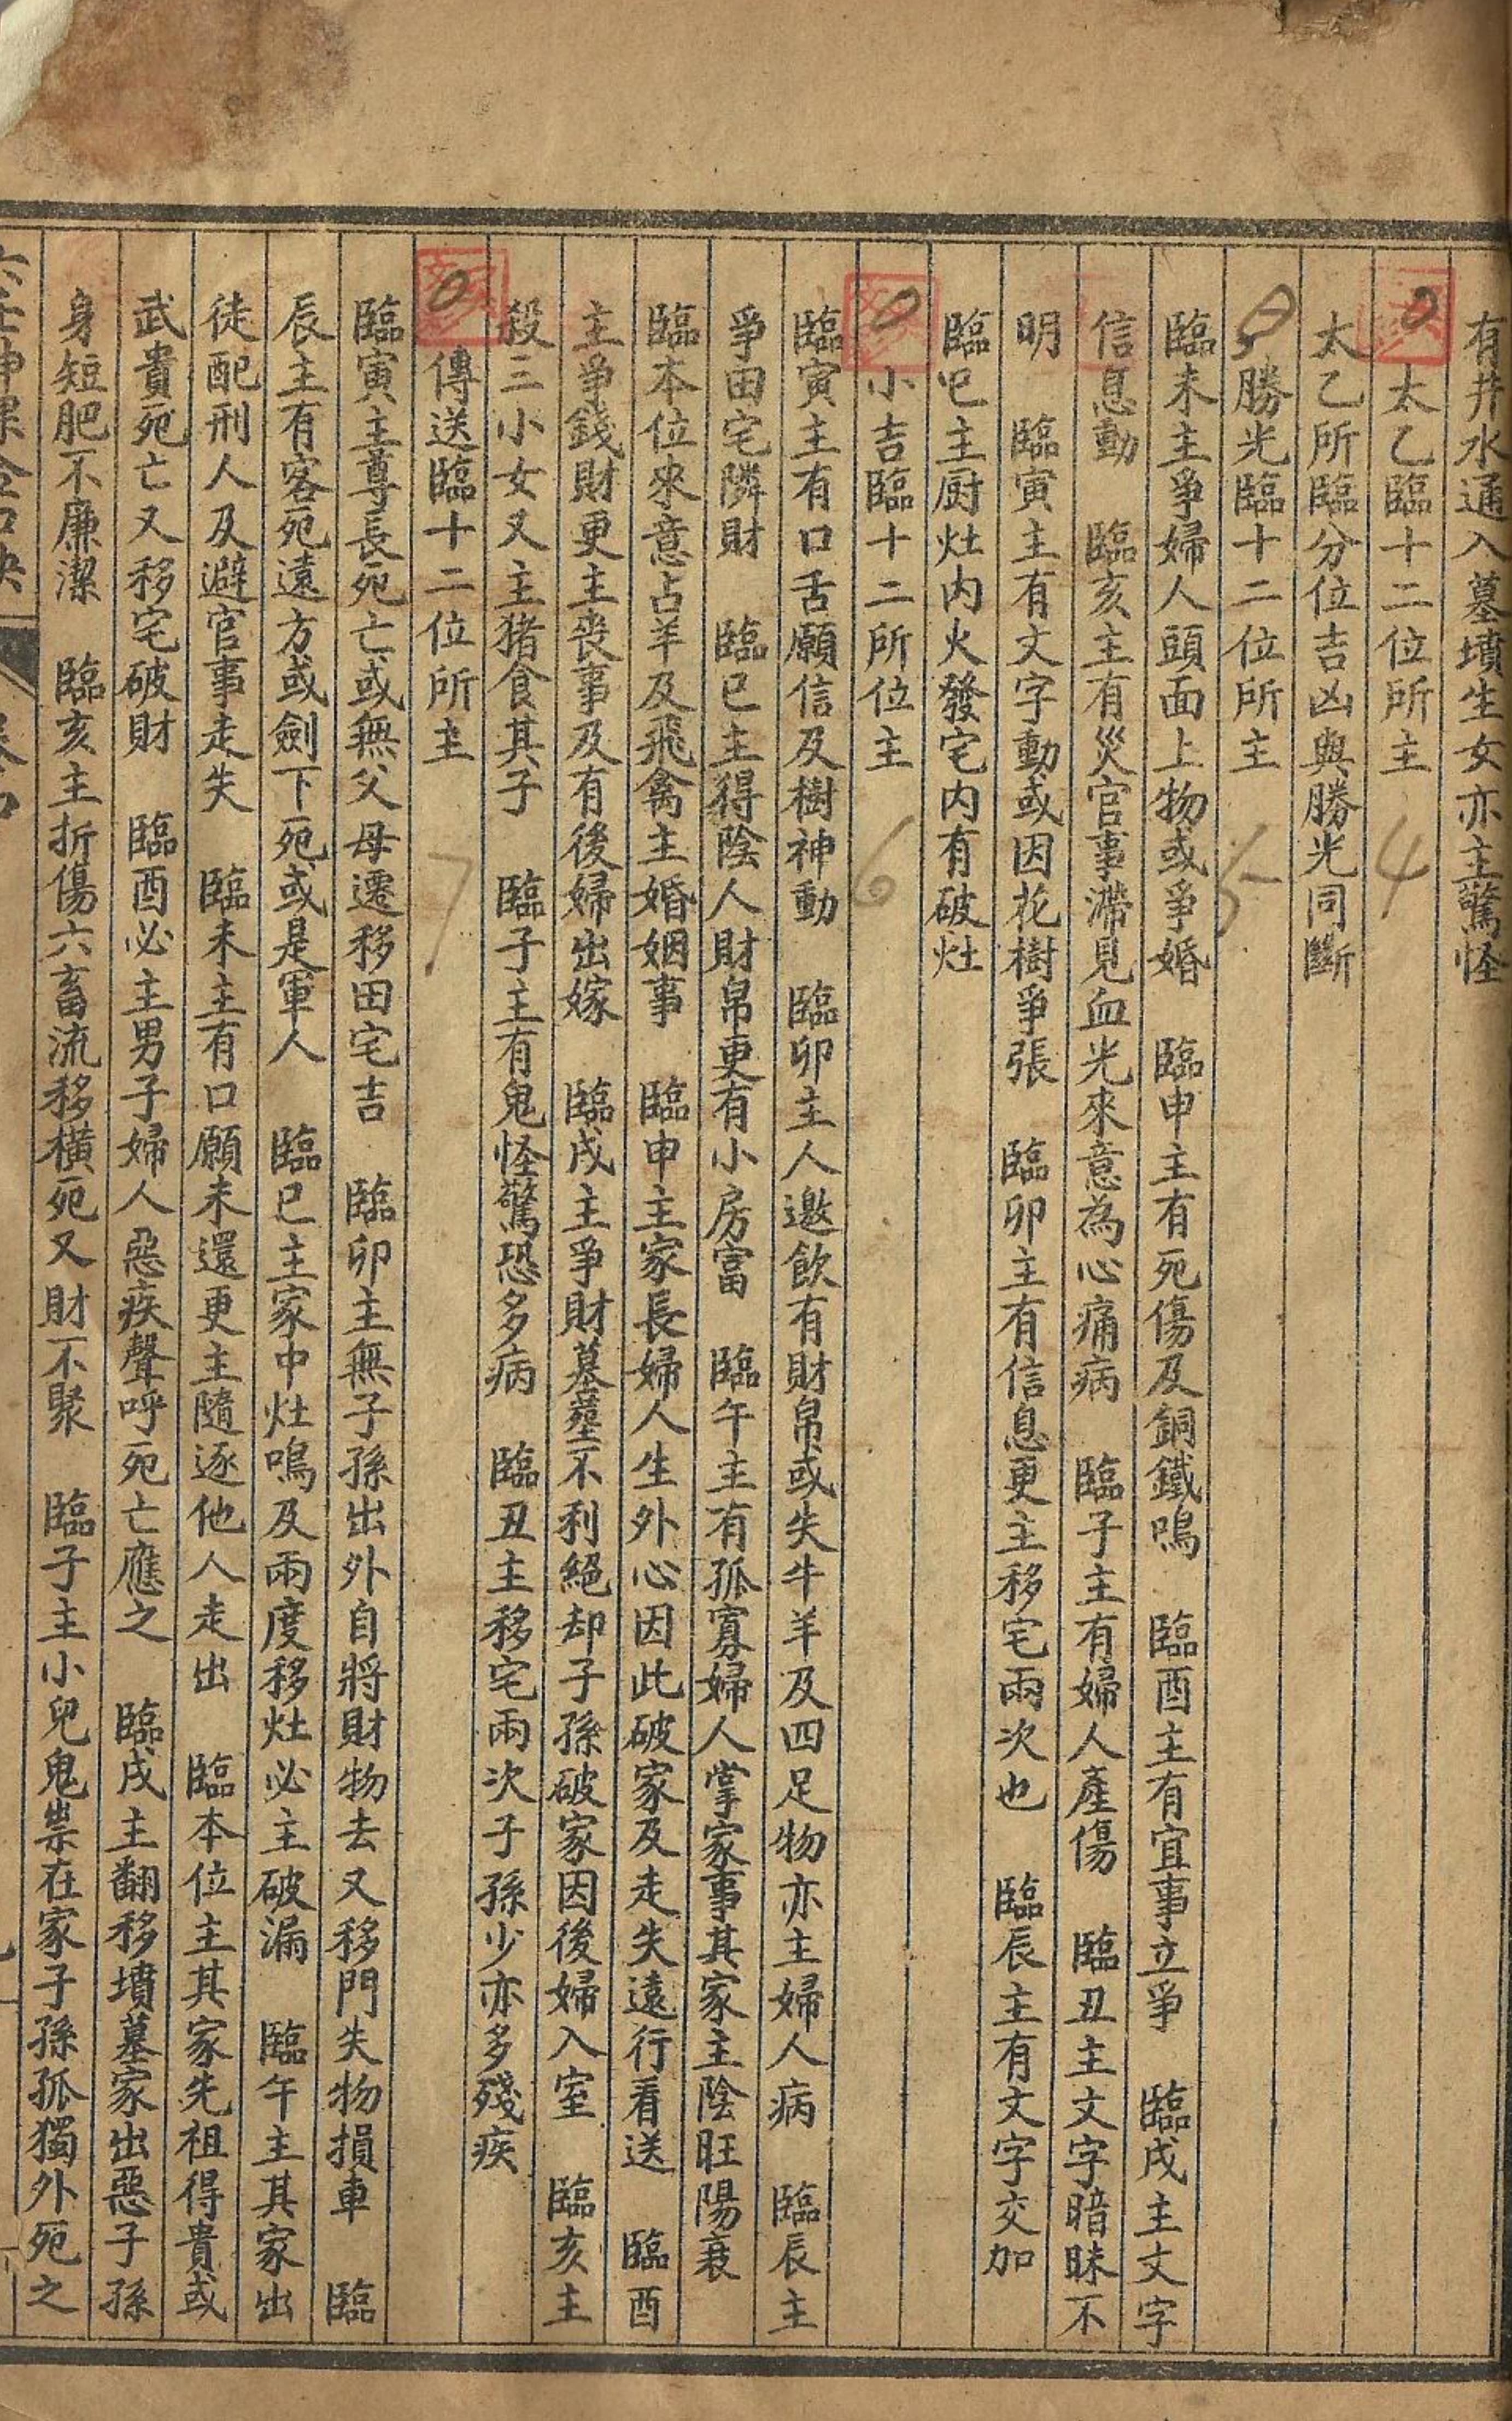 有井水通入墓墳生女亦主驚怪
太乙臨十二位所主 4
太乙所臨分位吉凶與勝光同斷
勝光臨十二位所主 5
臨未主爭婦人頭面上物或爭婚 臨申主有死傷及銅鐵鳴 臨酉主有宜事立爭 臨戌主文字
信息動 臨亥主有災官事滯見血光來意為心痛病 臨子主有婦人產傷 臨丑主文字暗昧不
明 臨寅主有文字動或因花樹爭張 臨卯主有信息更主移宅兩次也 臨辰主有文字交加
臨巳主厨灶内火發宅内有破灶
小吉臨十二所位主 6
臨寅主有口舌願信及樹神動 臨卯主人邀飲有財帛或失牛羊及四足物亦主婦人病 臨辰主
爭田宅隣財 臨巳主得陰人財帛更有小房富 臨午主有孤寡婦人掌家事其家主陰旺陽衰
臨本位來意占羊及飛禽主婚姻事 臨申主家長婦人生外心因此破家及走失遠行看送 臨酉
主爭錢財更主喪事及有後婦出嫁 臨戌主爭財墓塟不利絕却子孫破家因後婦入室 臨亥主
殺三小女又主猪食其子 臨子主有鬼怪驚恐多病 臨丑主移宅兩次子孫少亦多殘疾
傳送臨十二位所主 7
臨寅主尊長死亡或無父母遷移田宅吉 臨卯主無子孫出外自將財物去又移門失物損車 臨
辰主有客死遠方或劍下死或是軍人 臨巳主家中灶鳴及兩度移灶必主破漏 臨午主其家出
徒配刑人及避官事走失 臨未主有口願未還更主隨逐他人走出 臨本位主其家先祖得貴或
武貴死亡又移宅破財 臨酉必主男子婦人惡疾聲呼死亡應之 臨戌主翻移墳墓家出惡子孫
身短肥不廉潔 臨亥主折傷六畜流移橫死又財不聚 臨子主小兒鬼祟在家子孫孤獨外死之